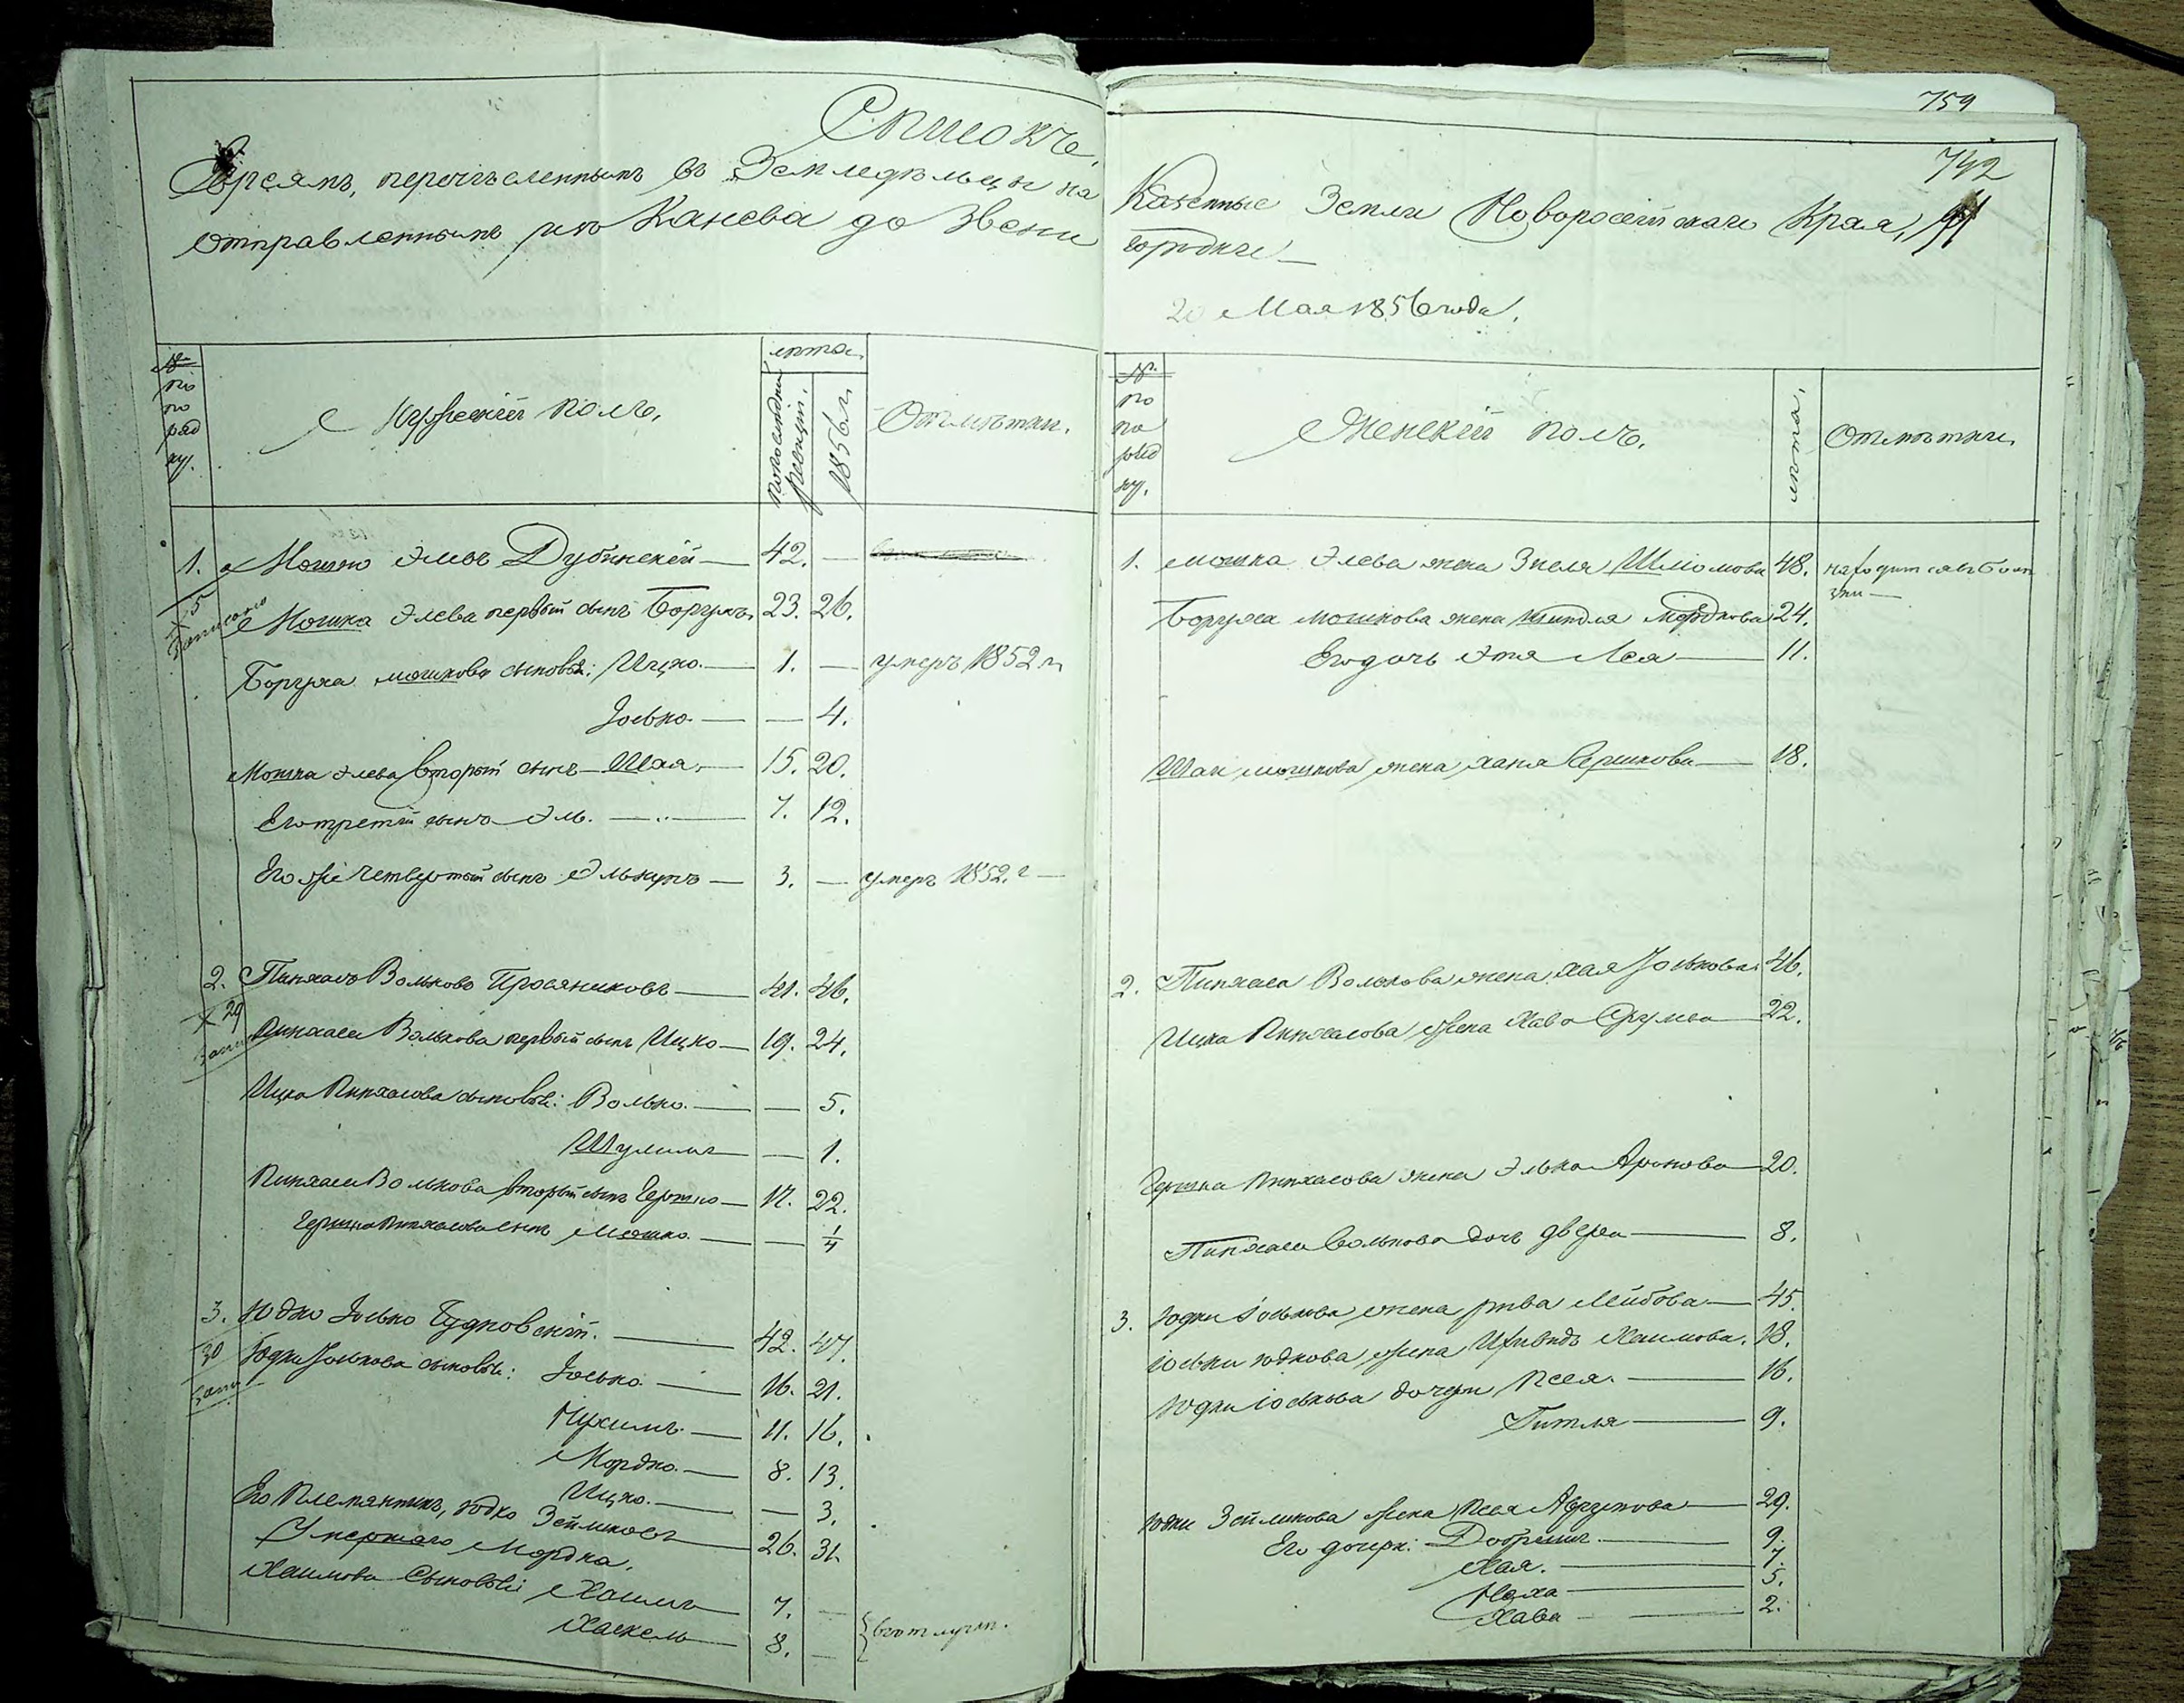 Списокъ.
Евреямъ, перечисленнымъ въ Земледѣльцы на
отправленнымъ изъ Канева до Звени
№
по
по
ряд
ку.
Мужескій полъ.
лѣта.
по последней
ревизіи.
1856 г.
Отмѣтки.
1. Мошко Элевъ Дубинскій — 42. —
5 Мошка Элева первый сынъ Боргухъ 23. 26.
записано
Боргуха мошкова сыновья: Ицко. — 1. — умеръ 1852 г.
Іосько. — — 4.
Мошка Элева второй сынъ — Шая. — 15. 20.
Его третій сынъ Эль. — 7. 12.
Его же четвертый сынъ — 3. — умеръ 1852. г —
2. Пинхасъ Вольковъ Просяниковъ — 41. 46.
29 Пинхаса Волькова первый сынъ Ицко — 19. 24.
Ицка Пинхасова сыновья: Волько. — — 5.
Шулимъ — — 1.
Пинхаса Волькова вторый сынъ Гершко — 17. 22.
Гершка Пинхасова сынъ Мошко. — — 1/4
3. Юдко Іосько Гудковскій. — 42. 47.
30 Юдки Іоськова сыновья: Іосько. — 16. 21.
Нухимъ. — 11. 16.
Мордко. — 8. 13.
Ицко. — — 3.
Его Племянникъ, Юдко Зейликовъ — 26. 31.
Умершаго Мордка,
Хаимова Сыновья Хаимъ 7. —
Хаскель — 8. — въ отлучки.
759
742
Казенные Земли Новоросейскаго Края, и
городки —
20 Мая 1856 года.
№
по
по
ряд
ку.
Женскій полъ.
лѣта.
Отмѣтки.
1. Мошка Элева жена Зисля Шлиомова 48. находится въ болѣ
зни —
Боргуха мошкова жена Шиндля Мордкова 24.
Его дочь Этя Лея — 11.
Шаи мошкова жена хана Бершкова — 18.
2. Пинхаса Волькова жена хая Іоськова. 46.
Ицка Пинхасова жена Хава Срулева — 22.
Гершка Пинхасова жена Элька Аронова — 20.
Пинхаса Волькова дочь двейра — 8.
3. Юдки Іоськова жена рива Лейбова — 45.
Іоськи юдкова жена Хаимова. 18.
Юдки Іоськова дочери Песя. — 16.
Гитля — 9.
Юдки Зейликова жена Песя — 29.
Его дочери: Добрешъ. — 9.
Хая. — 7.
Неха — 5.
Хава — 2.